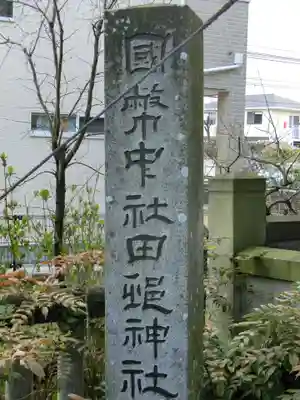 國幣中社田邨神社